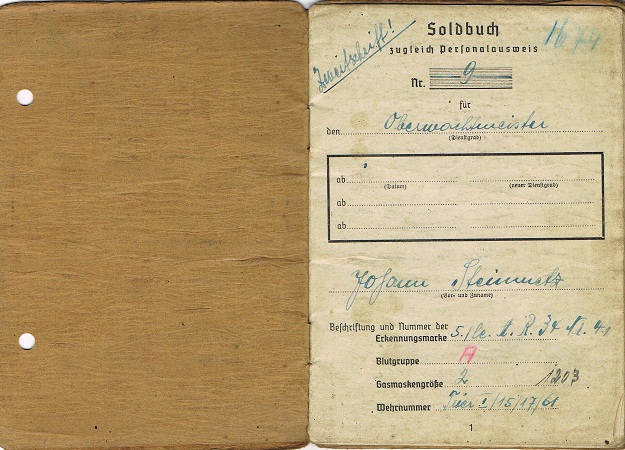 Zweitschrift!
1674
Soldbuch
zugleich Personalausweis
Nr. 9
für
den Oberwachtmeister
(Dienstgrad)
ab
(Datum) (neuer Dienstgrad)
ab
ab
Johann Steinmetz
(Vor- und Zuname)
Beschriftung und Nummer der
Erkennungsmarke 5./le. A. R. 34 Nr. 41
Blutgruppe A
Gasmaskengröße 2 1203
Wehrnummer Trier I/15/17/61
1